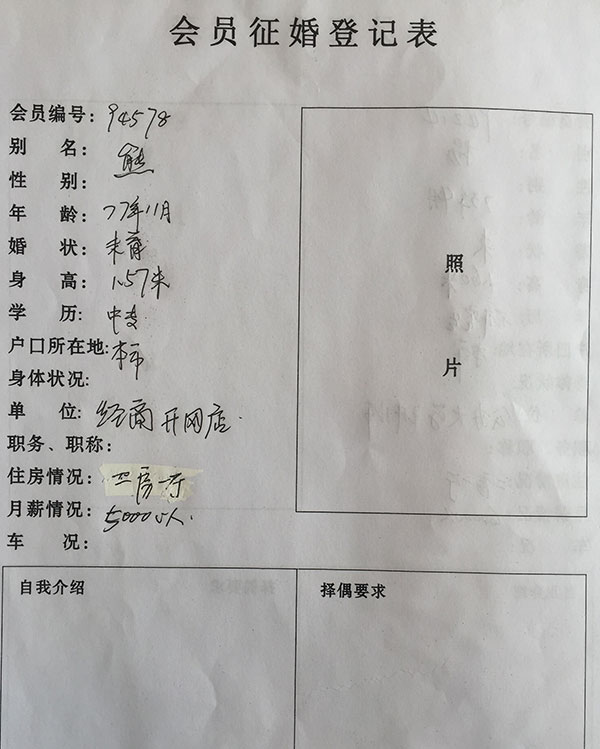 会员征婚登记表
会员编号：94578
别 名：熊
性 别：
年 龄：77年11月
婚 状：未育
身 高：1.57米
学 历：中专
户口所在地：本市
身体状况：
单 位：经商开网店.
职务、职称：
住房情况：二房一厅
月薪情况：5000以
车 况：
照
片
自我介绍
择偶要求